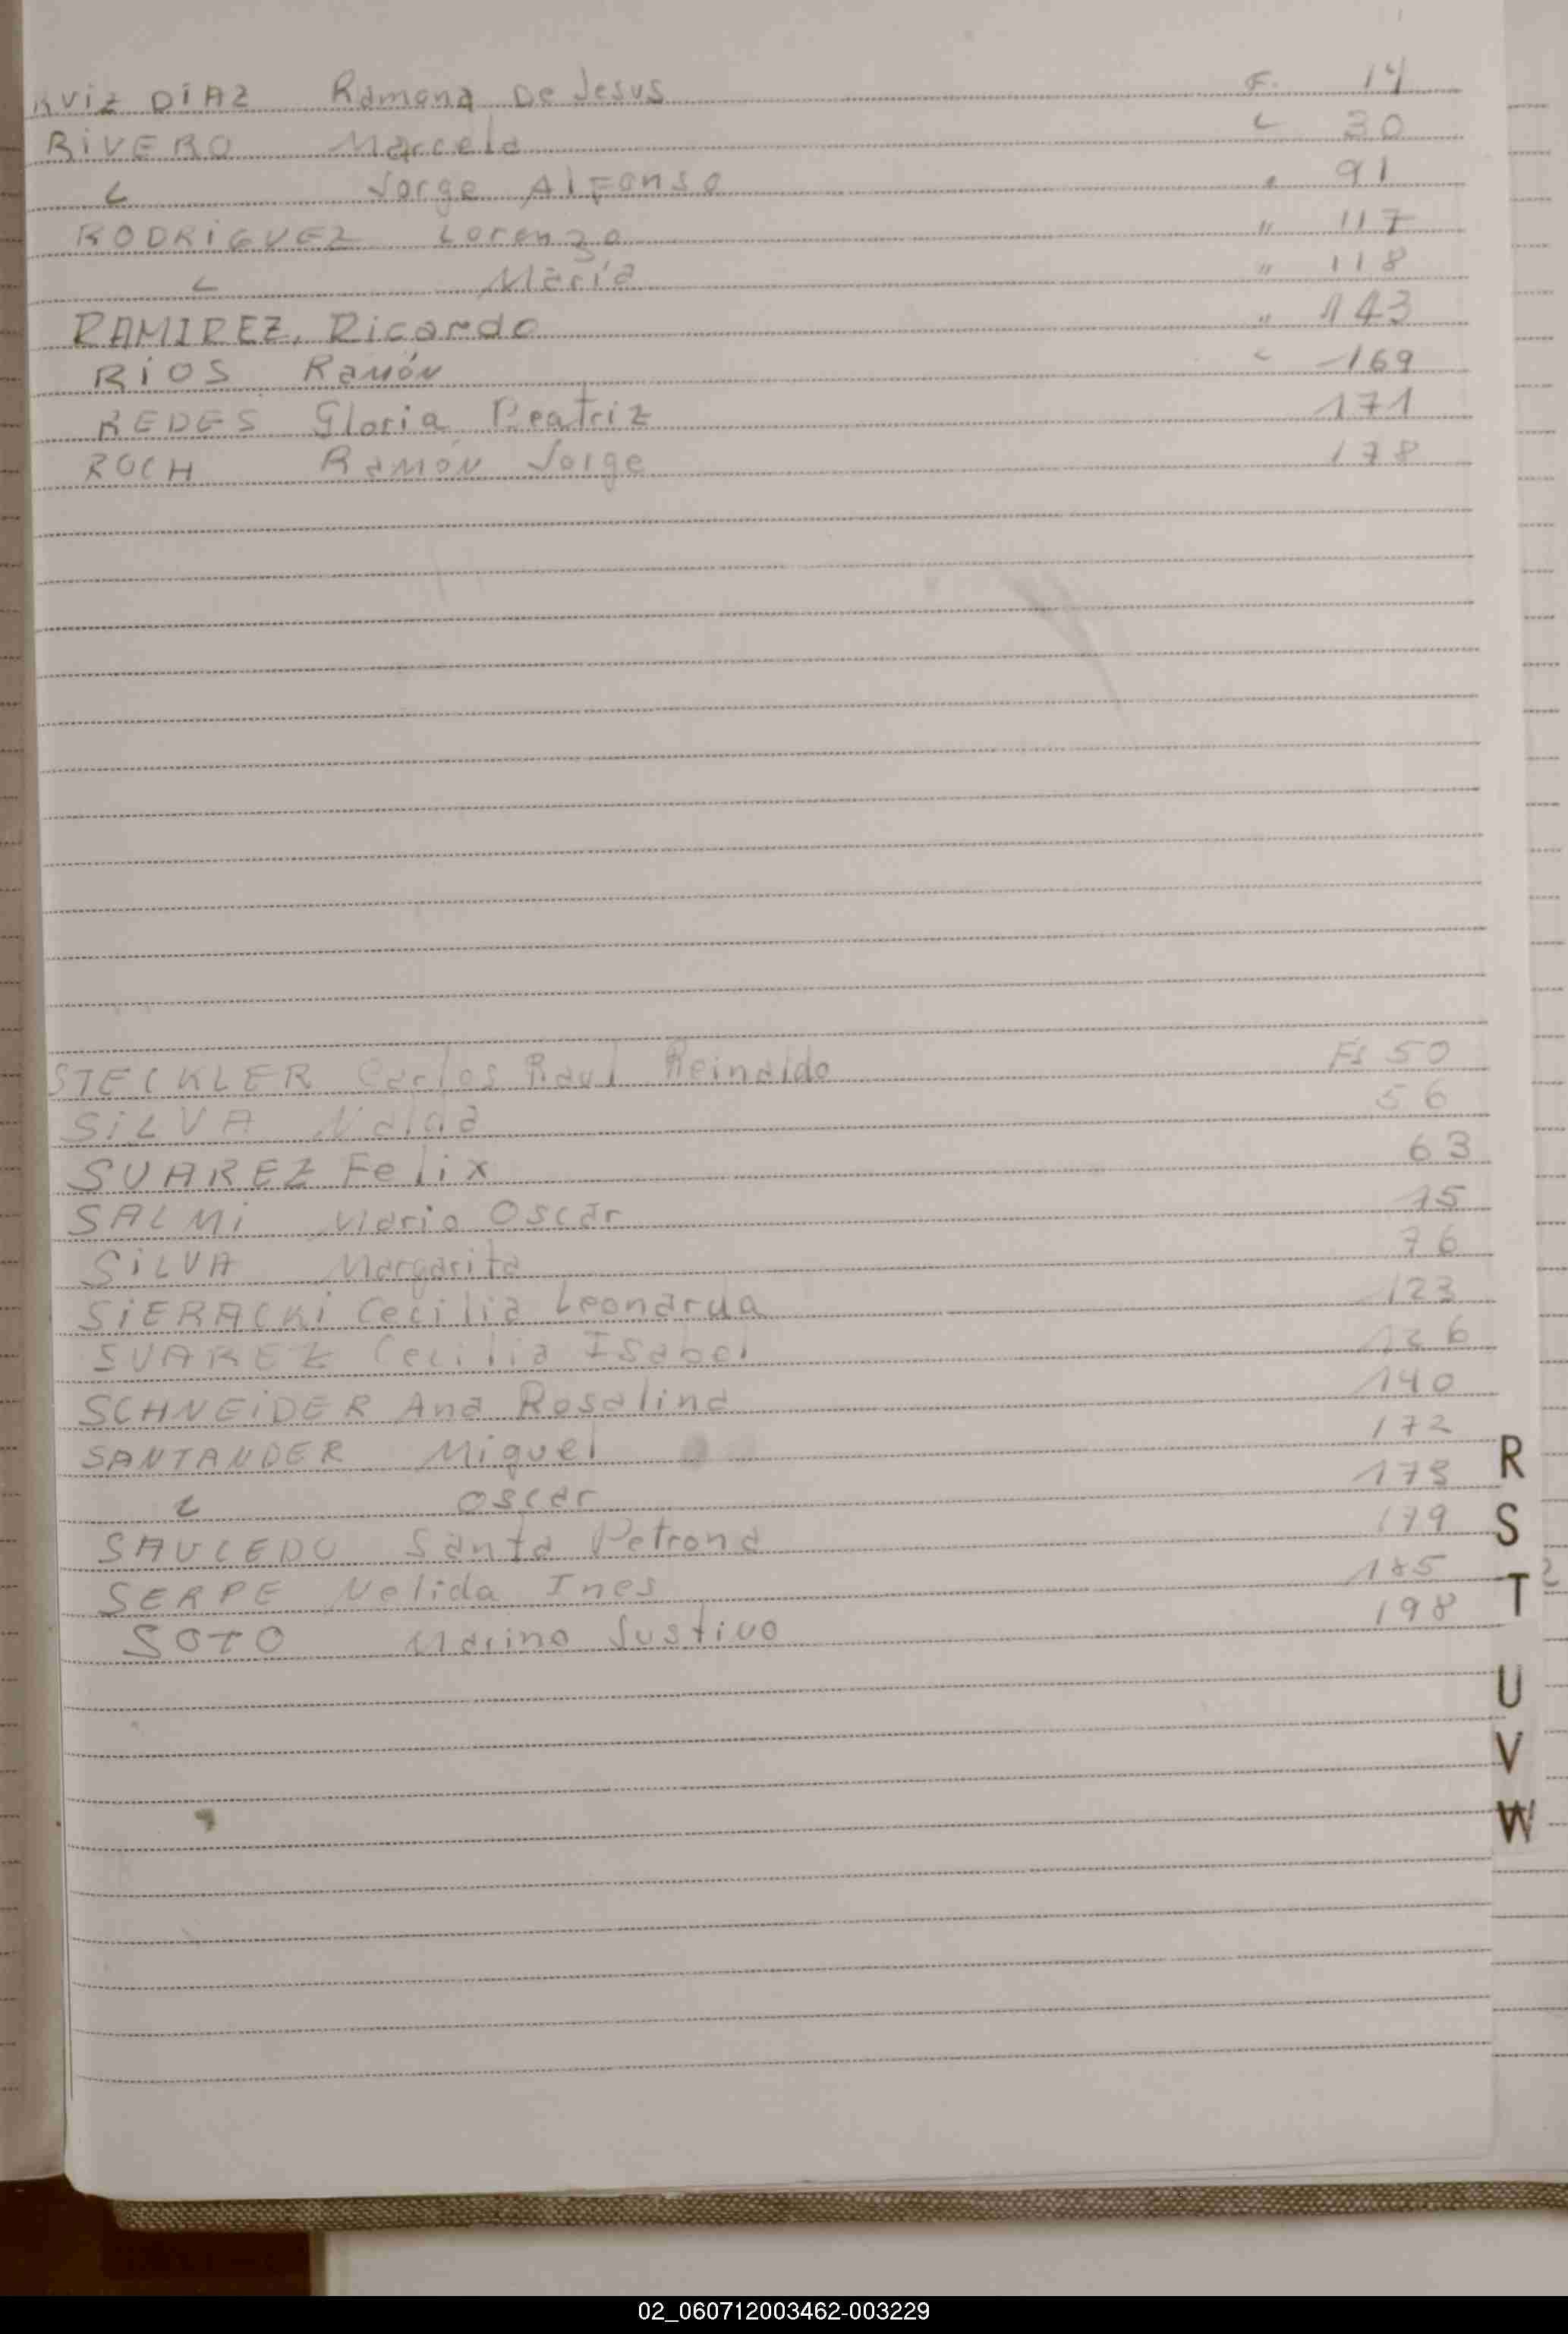 RUiZ DiAZ Ramona De Jesus F. 14
RiVERO Marcela " 30
" Jorge Alfonso " 91
RODRiGUEZ Lorenzo " 117
" María " 118
RAMIREZ, Ricardo " 143
RiOS Ramón " 169
REDES Gloria Beatriz 171
ROCH Ramón Jorge 178
STECKLER Carlos Raul Reinaldo Fs 50
SiLVA 56
SUAREZ Felix 63
SALMi Mario Oscar 75
SiLVA Margarita 76
SiERACKi Cecilia Leonarda 123
SUAREZ Cecilia Isabel
SCHNEiDER Ana Rosalina 140
SANTANDER Miguel 172
" Oscar 173
SAUCEDO Santa Petrona 179
SERPE Nelida Ines 185
SOTO Marino Justino 198
R
S
T
U
V
W
02_060712003462-003229